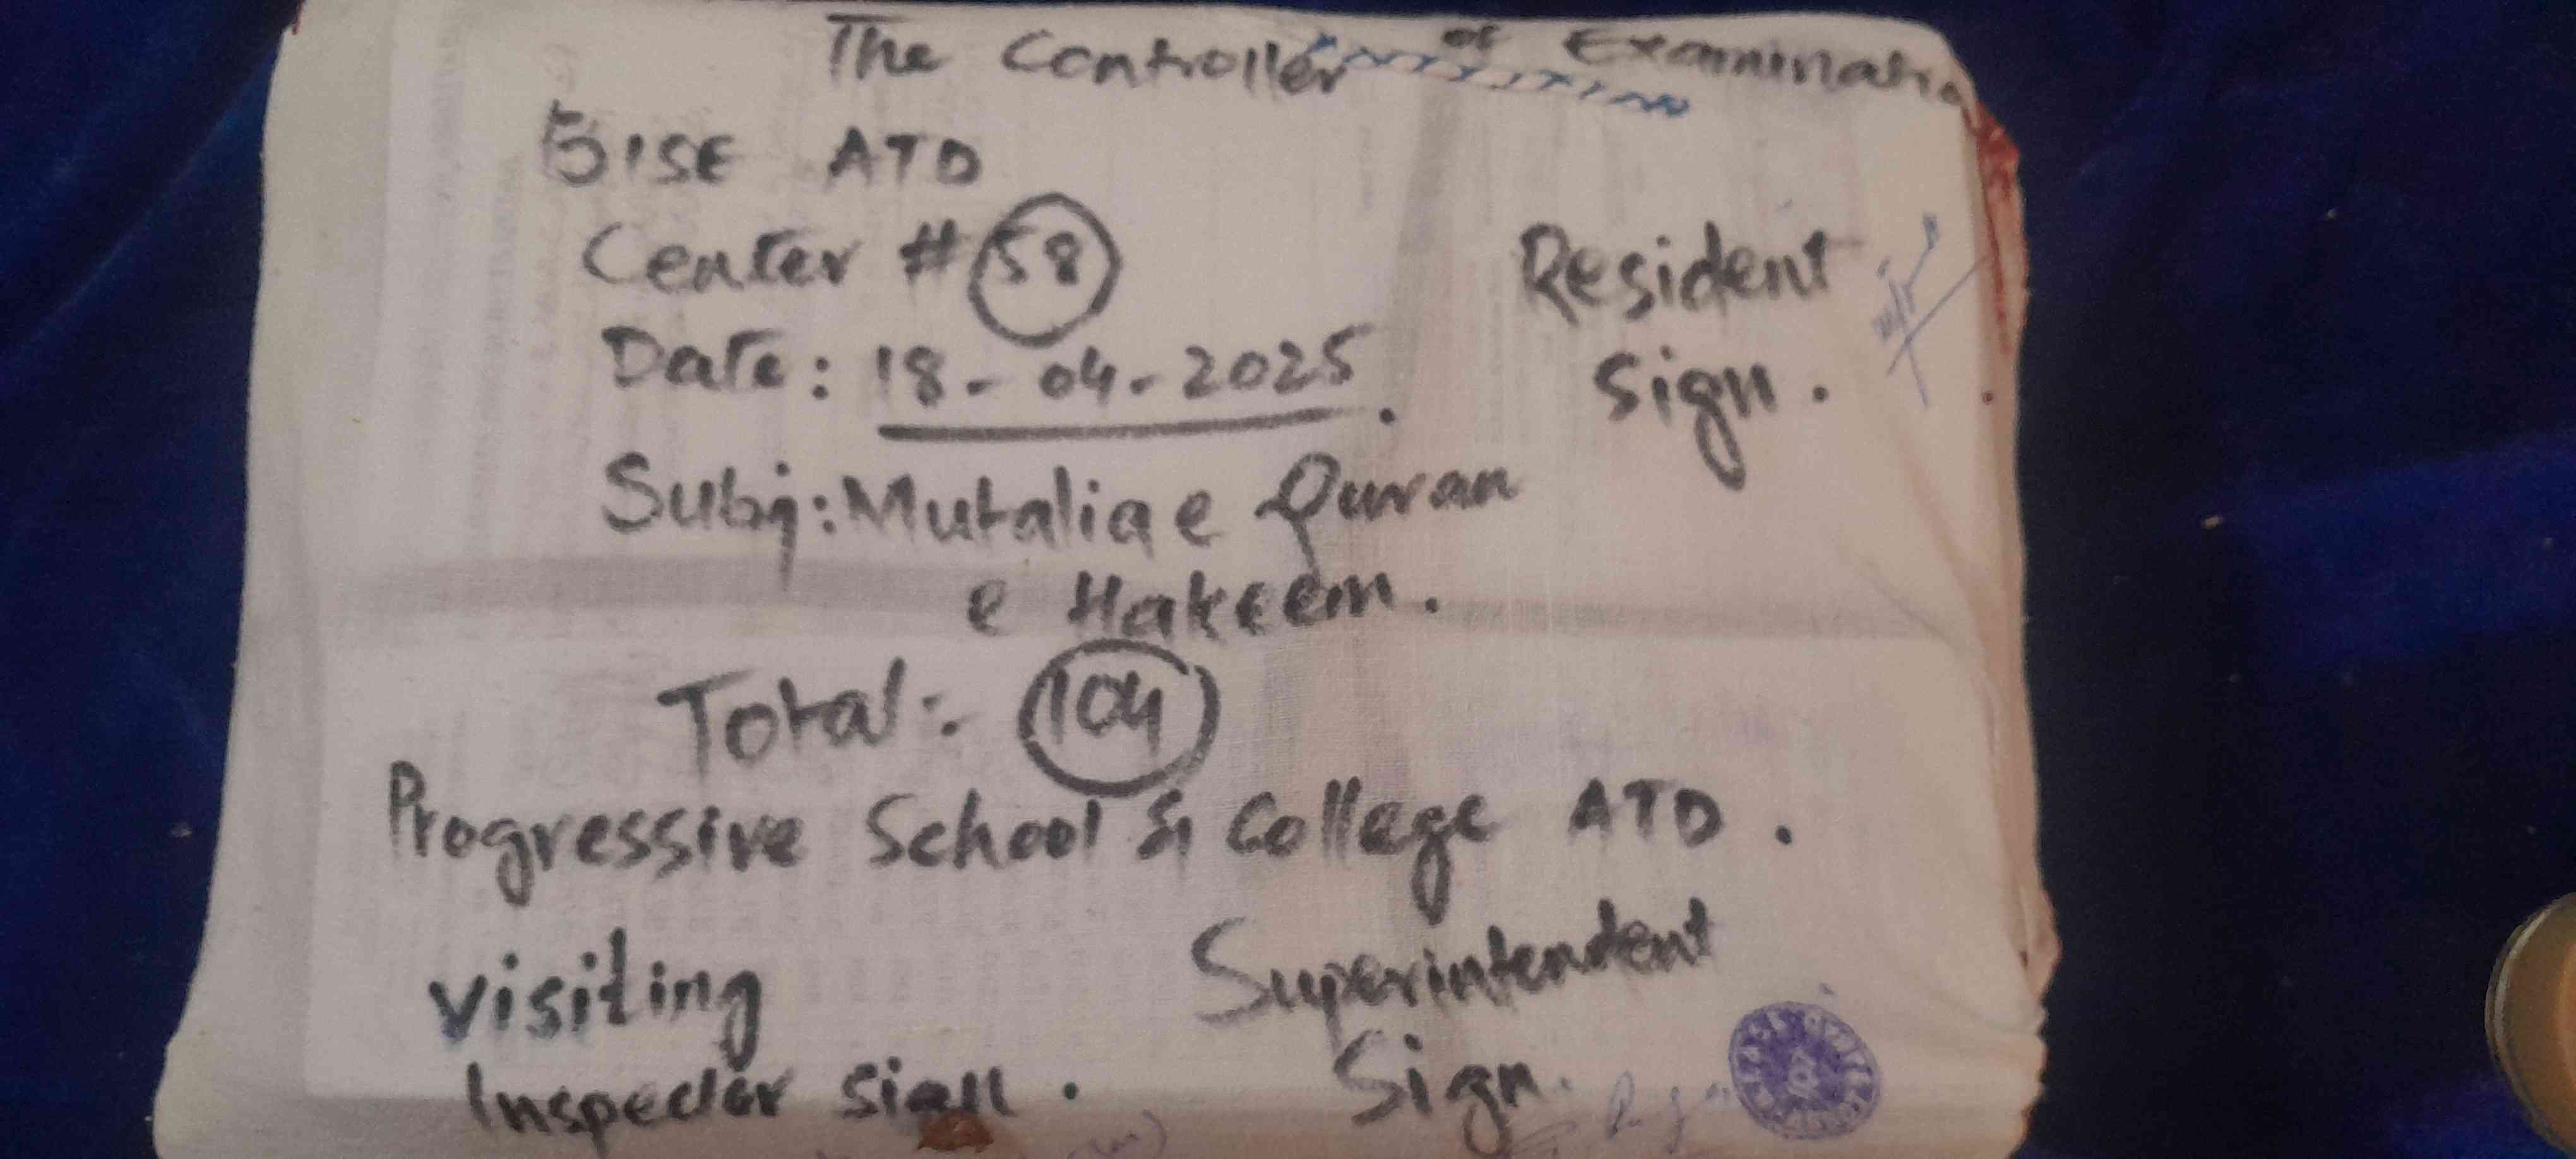 The Controller of Examinatio
BISE ATD
Center # 58
Date: 18-04-2025.
Resident
Sign.
Subj: Mutaliae Quran
e Hakeem.
Total:- 104
Progressive School & College ATD.
Visiting
Inspector Sign.
Superintendent
Sign.